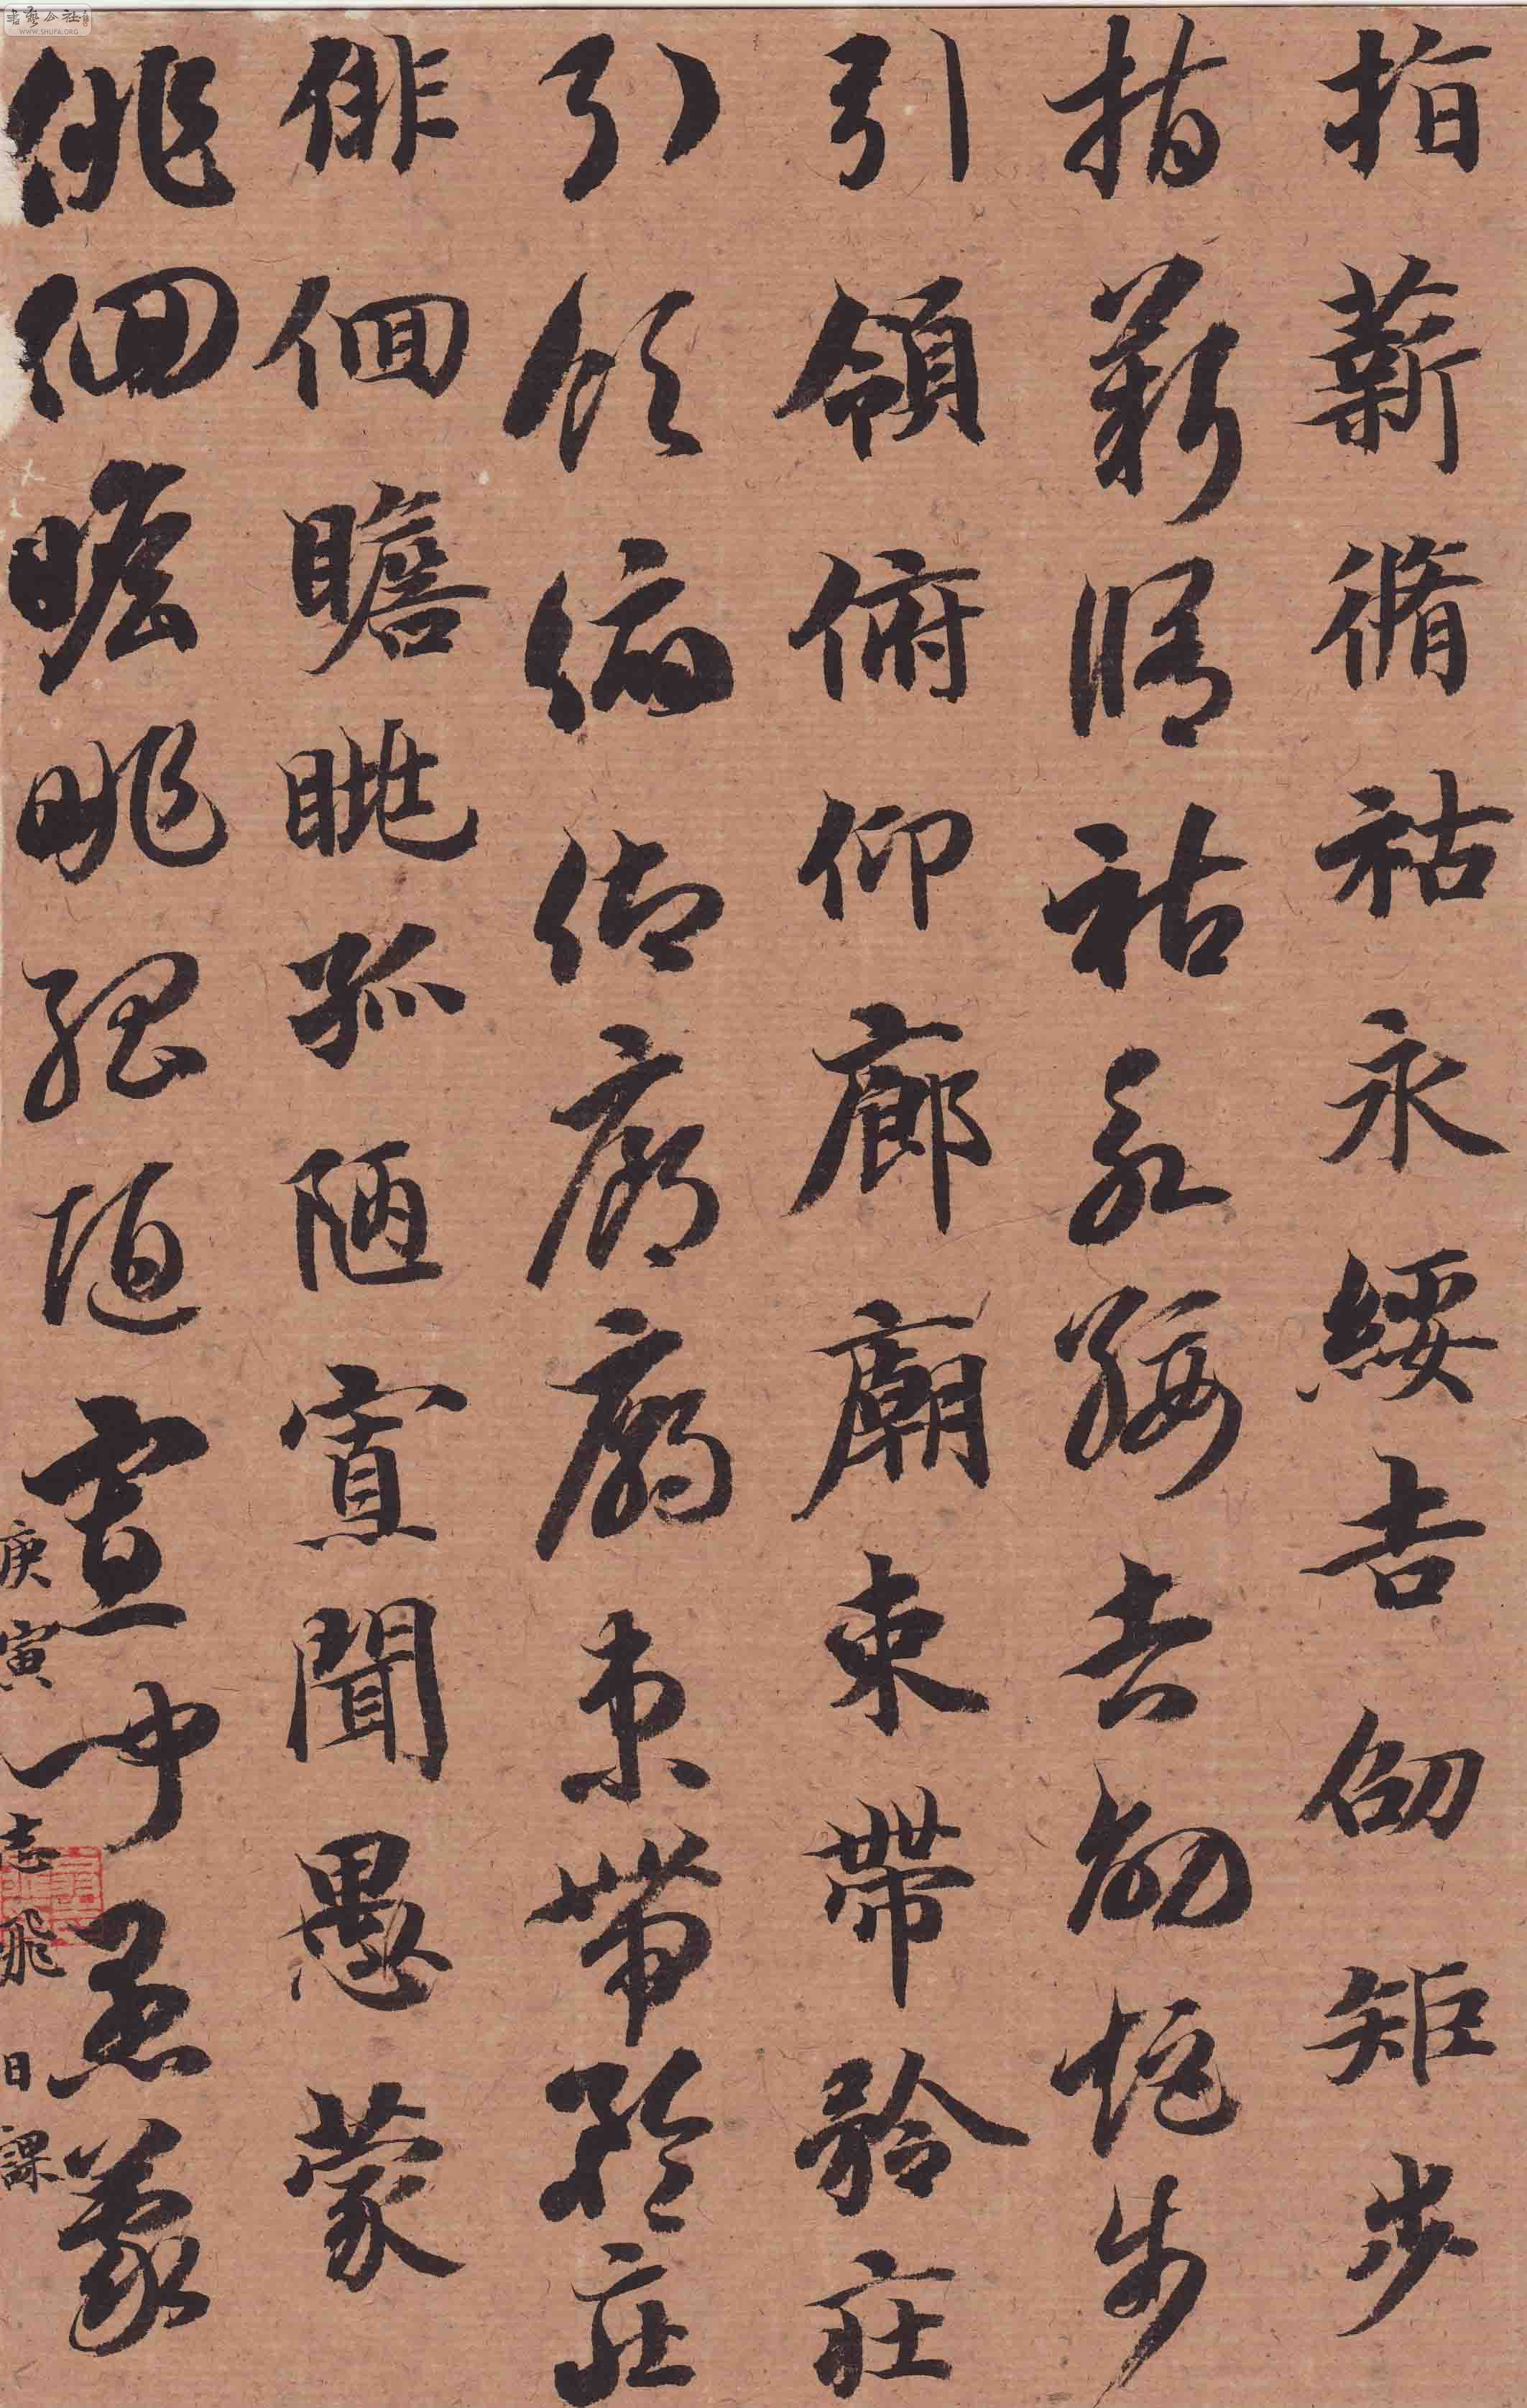 指薪脩祜永綏吉劭矩步
指薪脩祜永綏吉劭矩步
引領俯仰廊廟束帶矜莊
引領俯仰廊廟束帶矜莊
俳佪瞻眺孤陋寡聞愚蒙
俳佪瞻眺孤陋寡聞愚蒙
庚寅 志飛日課
書藝公社
WWW.SHUFA.ORG